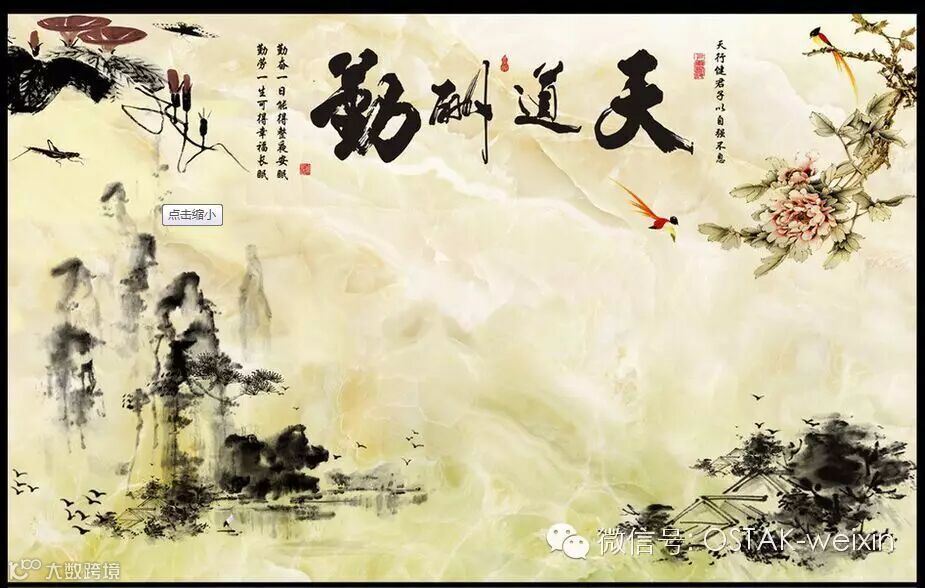 天道酬勤
天行健君子以自强不息
勤奋一日能得整夜安眠
勤劳一生可得幸福长眠
点击缩小
微信号: OSTAK-weixin
大数跨境